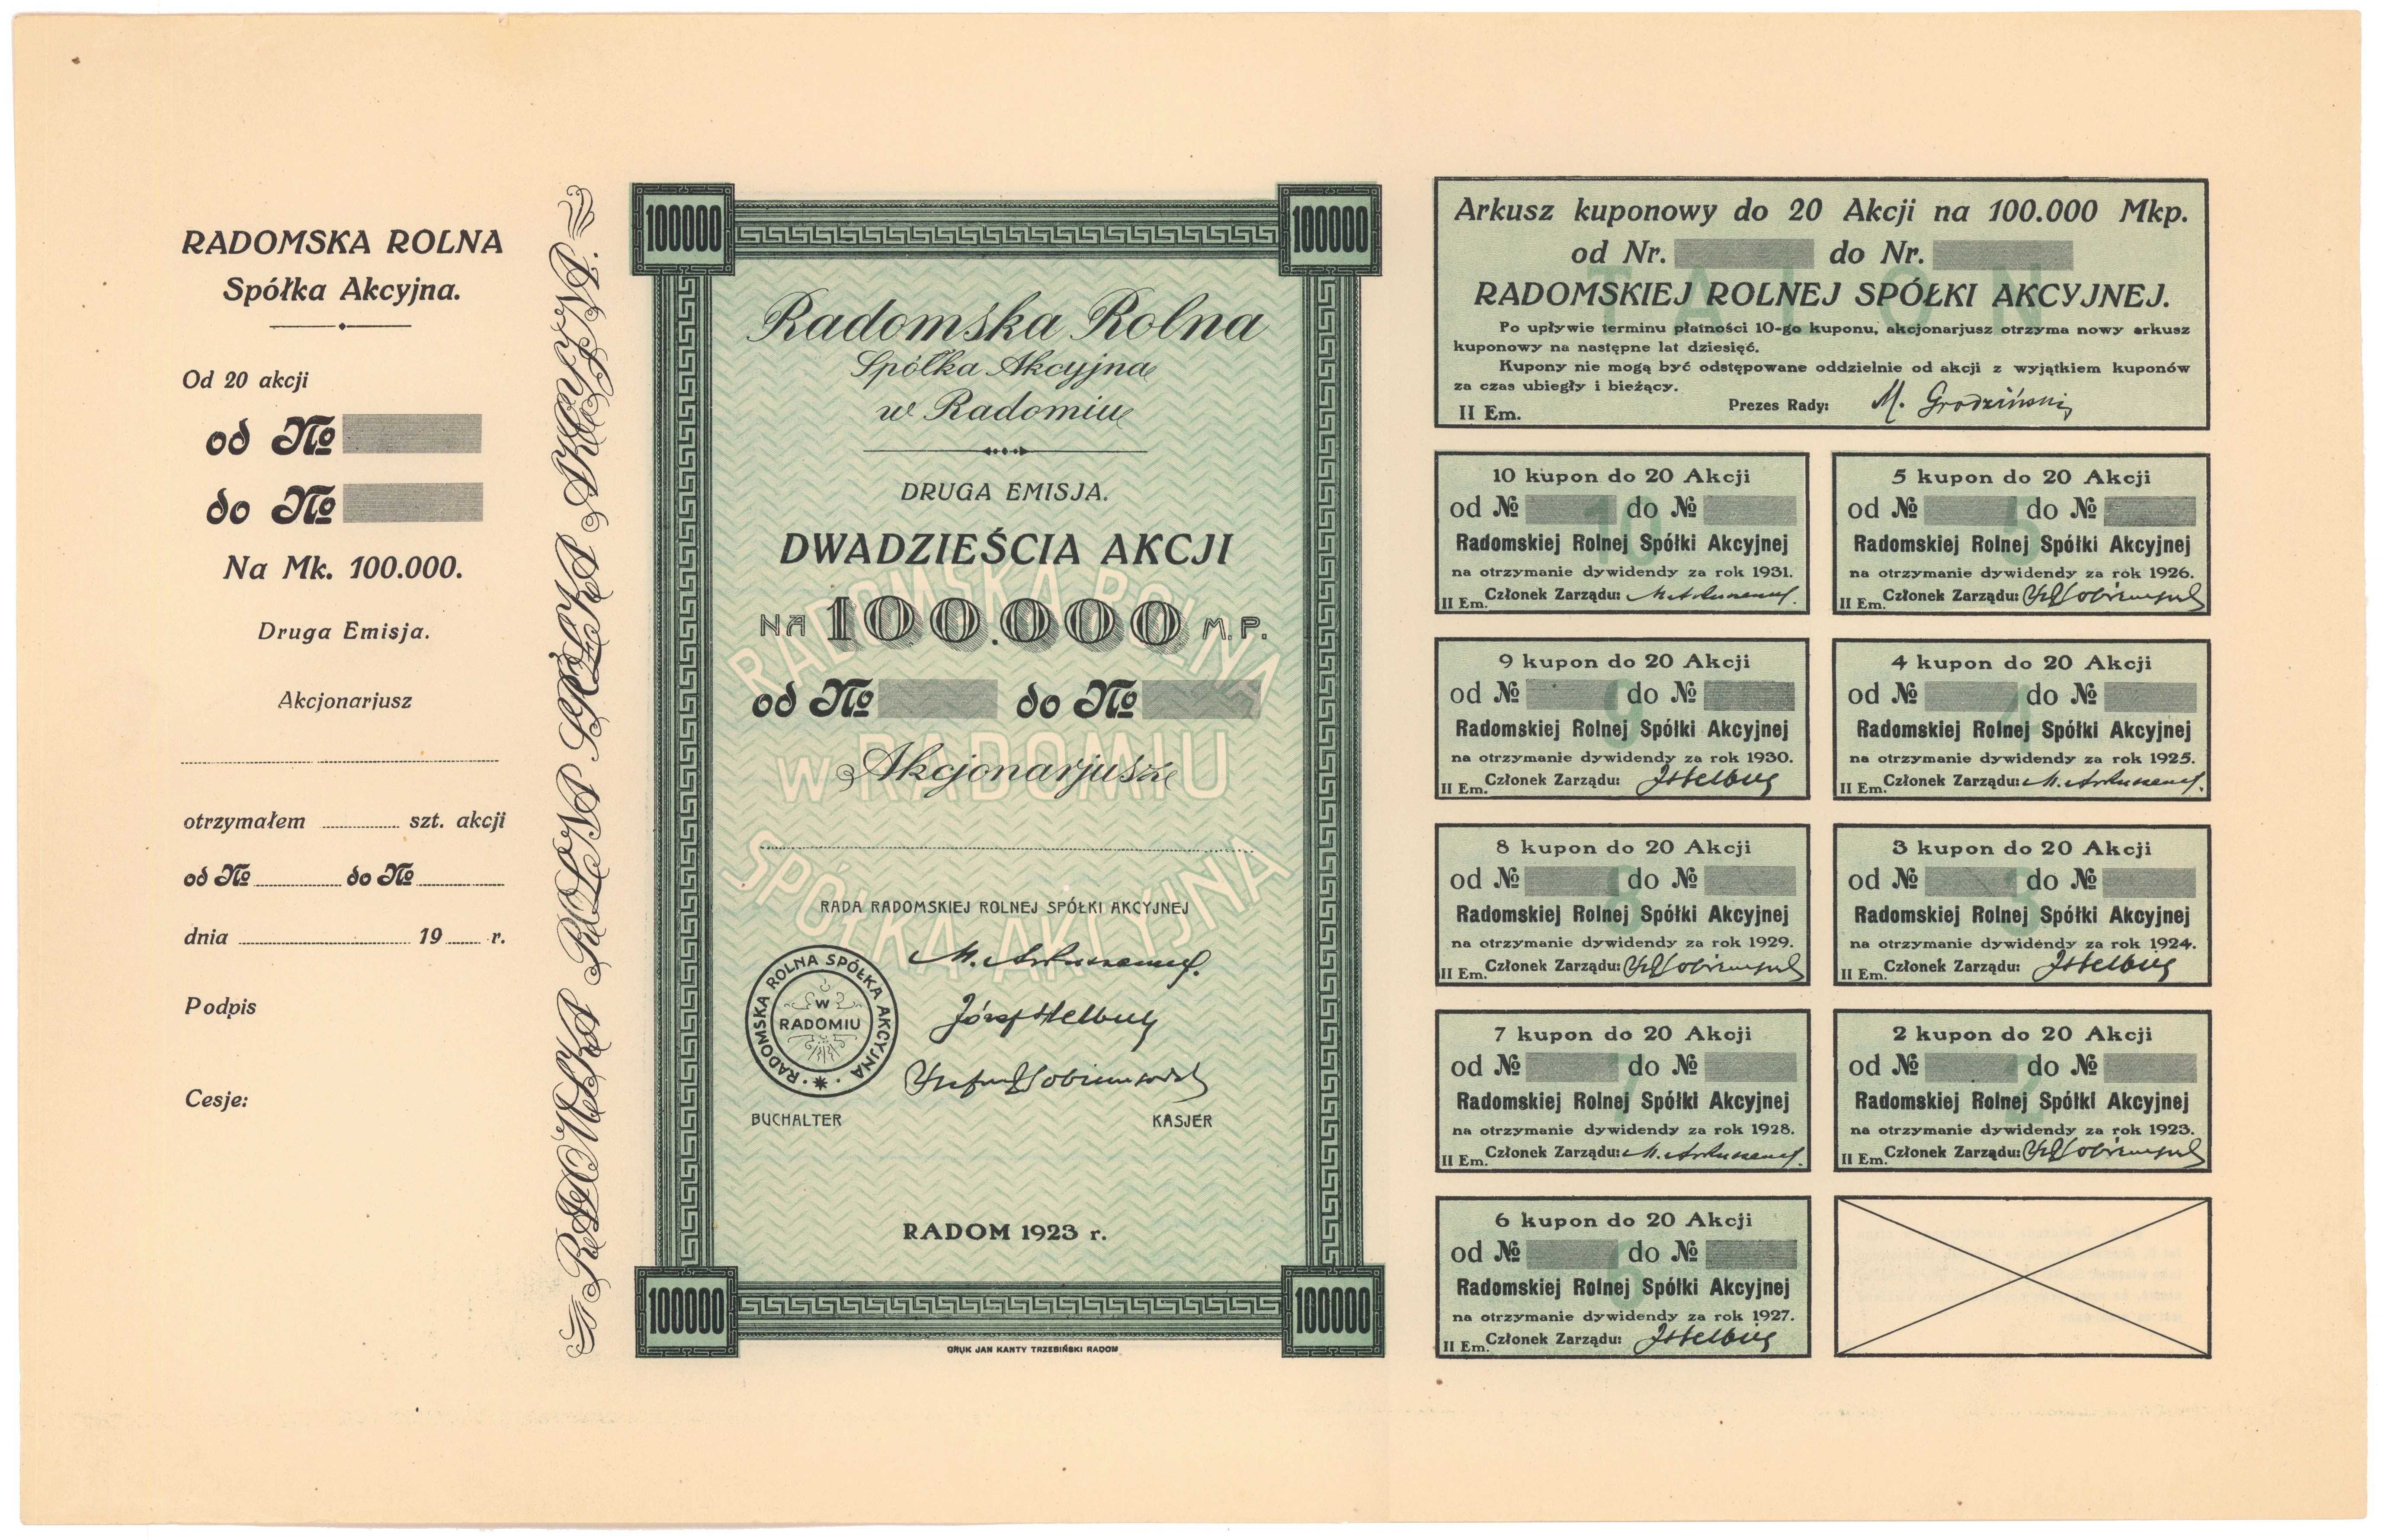 RADOMSKA ROLNA
Spółka Akcyjna.
Od 20 akcji
od №
do №
Na Mk. 100.000.
Druga Emisja.
Akcjonarjusz
otrzymałem szt. akcji
od № do №
dnia 19 r.
Podpis
Cesje:
RADOMSKA ROLNA SPÓŁKA AKCYJNA.
100000 100000
Radomska Rolna
Spółka Akcyjna
w Radomiu
DRUGA EMISJA.
DWADZIEŚCIA AKCJI
NA 100.000 M. P.
od № do №
Akcjonarjusz
RADOMSKA ROLNA
W RADOMIU
SPÓŁKA AKCYJNA
RADA RADOMSKIEJ ROLNEJ SPÓŁKI AKCYJNEJ
RADOMSKA ROLNA SPÓŁKA AKCYJNA
W
RADOMIU
BUCHALTER KASJER
RADOM 1923 r.
100000 100000
DRUK JAN KANTY TRZEBIŃSKI RADOM
Arkusz kuponowy do 20 Akcji na 100.000 Mkp.
od Nr. do Nr.
TALON
RADOMSKIEJ ROLNEJ SPÓŁKI AKCYJNEJ.
Po upływie terminu płatności 10-go kuponu, akcjonarjusz otrzyma nowy arkusz
kuponowy na następne lat dziesięć.
Kupony nie mogą być odstępowane oddzielnie od akcji z wyjątkiem kuponów
za czas ubiegły i bieżący.
II Em. Prezes Rady: M. Grodziński
10 kupon do 20 Akcji
od № do №
10
Radomskiej Rolnej Spółki Akcyjnej
na otrzymanie dywidendy za rok 1931.
II Em. Członek Zarządu:
5 kupon do 20 Akcji
od № do №
5
Radomskiej Rolnej Spółki Akcyjnej
na otrzymanie dywidendy za rok 1926.
II Em. Członek Zarządu:
9 kupon do 20 Akcji
od № do №
9
Radomskiej Rolnej Spółki Akcyjnej
na otrzymanie dywidendy za rok 1930.
II Em. Członek Zarządu:
4 kupon do 20 Akcji
od № do №
4
Radomskiej Rolnej Spółki Akcyjnej
na otrzymanie dywidendy za rok 1925.
II Em. Członek Zarządu:
8 kupon do 20 Akcji
od № do №
8
Radomskiej Rolnej Spółki Akcyjnej
na otrzymanie dywidendy za rok 1929.
II Em. Członek Zarządu:
3 kupon do 20 Akcji
od № do №
3
Radomskiej Rolnej Spółki Akcyjnej
na otrzymanie dywidendy za rok 1924.
II Em. Członek Zarządu:
7 kupon do 20 Akcji
od № do №
7
Radomskiej Rolnej Spółki Akcyjnej
na otrzymanie dywidendy za rok 1928.
II Em. Członek Zarządu:
2 kupon do 20 Akcji
od № do №
2
Radomskiej Rolnej Spółki Akcyjnej
na otrzymanie dywidendy za rok 1923.
II Em. Członek Zarządu:
6 kupon do 20 Akcji
od № do №
6
Radomskiej Rolnej Spółki Akcyjnej
na otrzymanie dywidendy za rok 1927.
II Em. Członek Zarządu: